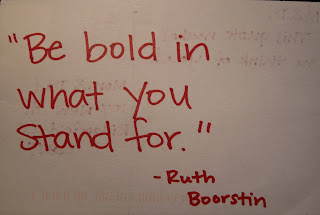 "Be bold in
what you
Stand for."
- Ruth
Boorstin